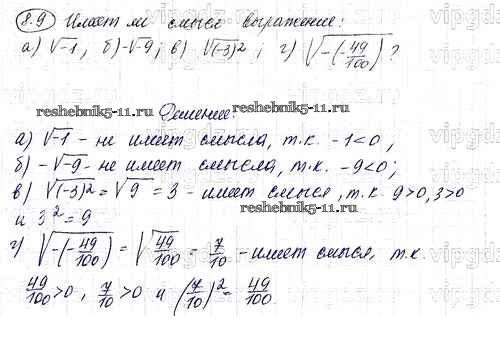 8.9 Имеет ли смысл выражение:
а) √-1, б) -√-9; в) √(-3)²; г) √-(-49/100)?
reshebnik5-11.ru
Решение:
reshebnik5-11.ru
а) √-1 - не имеет смысла, т.к. -1<0,
б) -√-9 - не имеет смысла, т.к. -9<0;
в) √(-3)² = √9 = 3 - имеет смысл, т.к. 9>0, 3>0
reshebnik5-11.ru
и 3² = 9
г) √-(-49/100) = √49/100 = 7/10 - имеет смысл, т.к.
49/100>0, 7/10>0 и (7/10)² = 49/100.